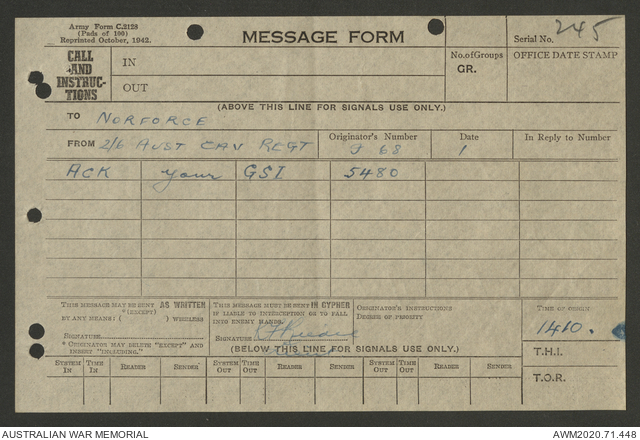 Army Form C.2128
(Pads of 100)
Reprinted October, 1942.
MESSAGE FORM
Serial No. 245
CALL AND INSTRUC-TIONS
IN
OUT
No. of Groups
GR.
OFFICE DATE STAMP
(ABOVE THIS LINE FOR SIGNALS USE ONLY.)
TO NORFORCE
FROM 2/6 AUST CAV REGT
Originator's Number
J 68
Date
1
In Reply to Number
ACK your GSI 5480
THIS MESSAGE MAY BE SENT AS WRITTEN
*(EXCEPT)
BY ANY MEANS: ( ) WIRELESS
SIGNATURE
* ORIGINATOR MAY DELETE "EXCEPT" AND INSERT "INCLUDING."
THIS MESSAGE MUST BE SENT IN CYPHER
IF LIABLE TO INTERCEPTION OR TO FALL
INTO ENEMY HANDS.
SIGNATURE
ORIGINATOR'S INSTRUCTIONS
DEGREE OF PRIORITY
TIME OF ORIGIN
1410.
T.H.I.
T.O.R.
(BELOW THIS LINE FOR SIGNALS USE ONLY.)
SYSTEM IN TIME IN READER SENDER SYSTEM OUT TIME OUT READER SENDER SYSTEM OUT TIME OUT READER SENDER
AUSTRALIAN WAR MEMORIAL
AWM2020.71.448